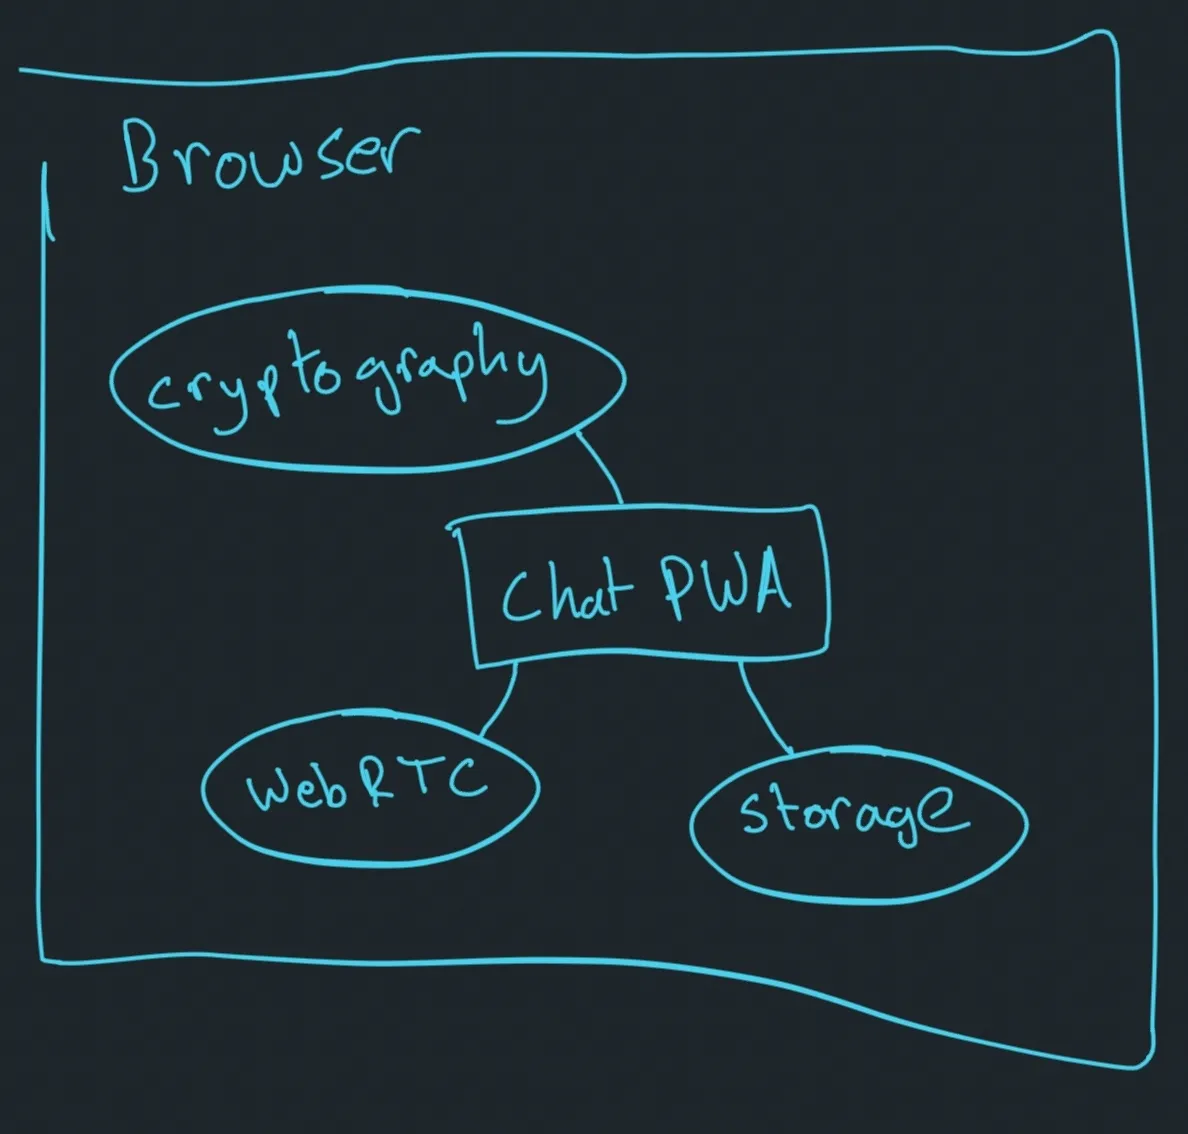 Browser
cryptography
Chat PWA
WebRTC
storage